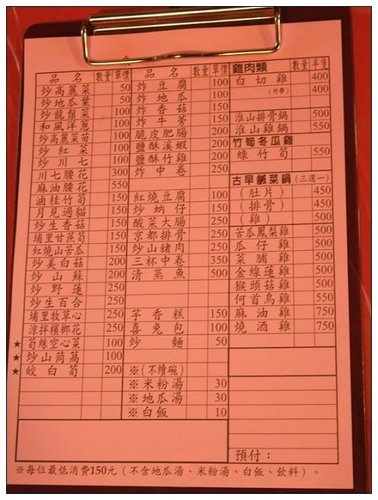 品名 數量 單價 品名 數量 單價 雞肉類 數量 半隻
炒高麗菜 50 炸豆腐 100 白切雞 400
炒地瓜葉 50 炸地瓜 100 (外帶) 400
炒龍鬚菜 100 炸香菇 150
和風洋蔥 100 炸牛蒡 150 淮山排骨鍋 500
炒高麗菜苗 100 脆皮肥腸 200 淮山雞鍋 550
炒紅菜 100 鹽酥溪蝦 200 竹筍冬瓜雞
炒川七 100 鹽酥竹雞 200 綠竹筍 550
川七腰花 300 炸中卷 250
麻油腰花 550 古早鹹菜鍋 (三選一)
涵桂竹筍 150 紅燒豆腐 100 (肚片) 450
月見過貓 150 炒蚋仔 150 (排骨) 450
炒生香菇 150 酸菜大腸 250 (雞) 500
埔里甘蔗筍 150 京都排骨 250 苦瓜鳳梨雞 550
紅燒山苦瓜 150 炒山豬肉 250 瓜仔雞 550
炒美白菇 200 三杯中卷 350 菜脯雞 550
炒山蘇 200 清蒸魚 500 金線蓮雞 550
炒野蓮 250 猴頭菇雞 550
炒生百合 250 何首烏雞 550
埔里牧草心 250 芋香糕 150 麻油雞 750
涼拌檳榔花 250 喜兔包 100 燒酒雞 750
★ 筍絲空心菜 100 炒麵 50
★ 炒山茼萵 100
★ 皎白筍 200 ※(不續碗)
※米粉湯 30
※地瓜湯 30
※白飯 10
預付：
※每位最低消費150元（不含地瓜湯、米粉湯、白飯、飲料）。